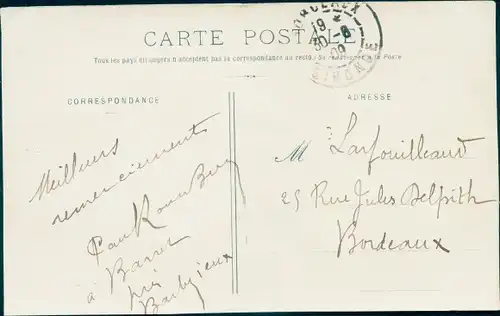 CARTE POSTALE
Tous les pays étrangers n'acceptent pas la correspondance au recto. Se renseigner à la Poste
BORDEAUX
19
30 -8
09
GIRONDE
CORRESPONDANCE
ADRESSE
Meilleurs
remerciements
Paul
à Barret
près
Barbezieux
M Larfouilleaud
25 Rue Jules Delpith
Bordeaux